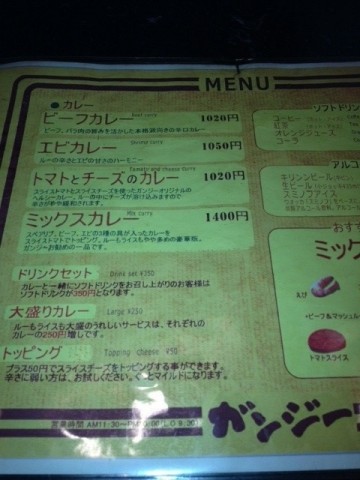 MENU
●カレー
Beef curry
ビーフカレー 1020円
ビーフ、バラ肉の旨みを活かした本格派向きの辛口カレー
Shrimp curry
エビカレー 1050円
ルーの辛さとエビの甘さのハーモニー
Tomato and cheese Curry
トマトとチーズのカレー 1020円
スライストマトとスライスチーズを使ったガンジーオリジナルの
ヘルシーカレー。ルーの中にチーズが溶け込みますので
辛さが やや緩和されます。
Mix curry
ミックスカレー 1400円
スペアリブ、ビーフ、エビの3種の具が入ったカレーを
スライストマトでトッピング。ルーもライスもやや多めの豪華版。
ガンジーお勧めの一品です。
ドリンクセット Drink set ¥350
カレーと一緒にソフトドリンクをお召し上がりのお客様は
ソフトドリンクが350円となります。
大盛りカレー Large ¥250
ルーもライスも大盛のうれしいサービスは、それぞれの
カレーの250円増しです。
トッピング Topping cheese ¥50
プラス50円でスライスチーズをトッピングする事ができます。
辛さに弱い方は、お試しください。ぐっとマイルドになります。
営業時間 AM11:30~PM
ガンジー
ソフトドリン
コーヒー
紅茶
オレンジジュース
コーラ
アルコ
キリンビール
生ビール
スミノフアイス
おす
ミック
えび
・ビーフ&マッシュル
トマトスライス